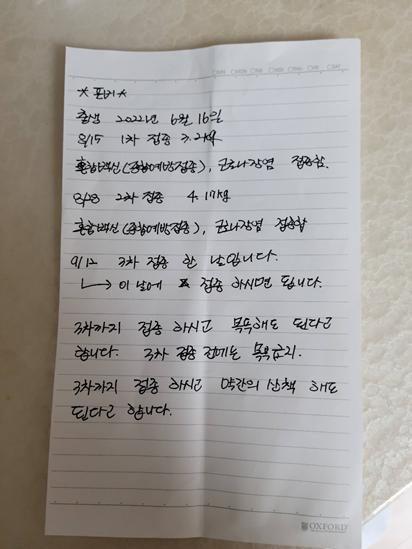 *포키*
출생 2022년 6월 16일
8/15 1차 접종 3.2kg
혼합백신(종합예방접종), 코로나장염 접종함.
8/28 2차 접종 4.17kg
혼합백신(종합예방접종), 코로나장염 접종함
9/12 3차 접종 한 날입니다.
이 날에 접종 하시면 됩니다.
3차까지 접종 하시고 목욕해도 된다고
합니다. 3차 접종 전에는 목욕금지.
3차까지 접종 하시고 약간의 산책 해도
된다고 합니다.
OXFORD